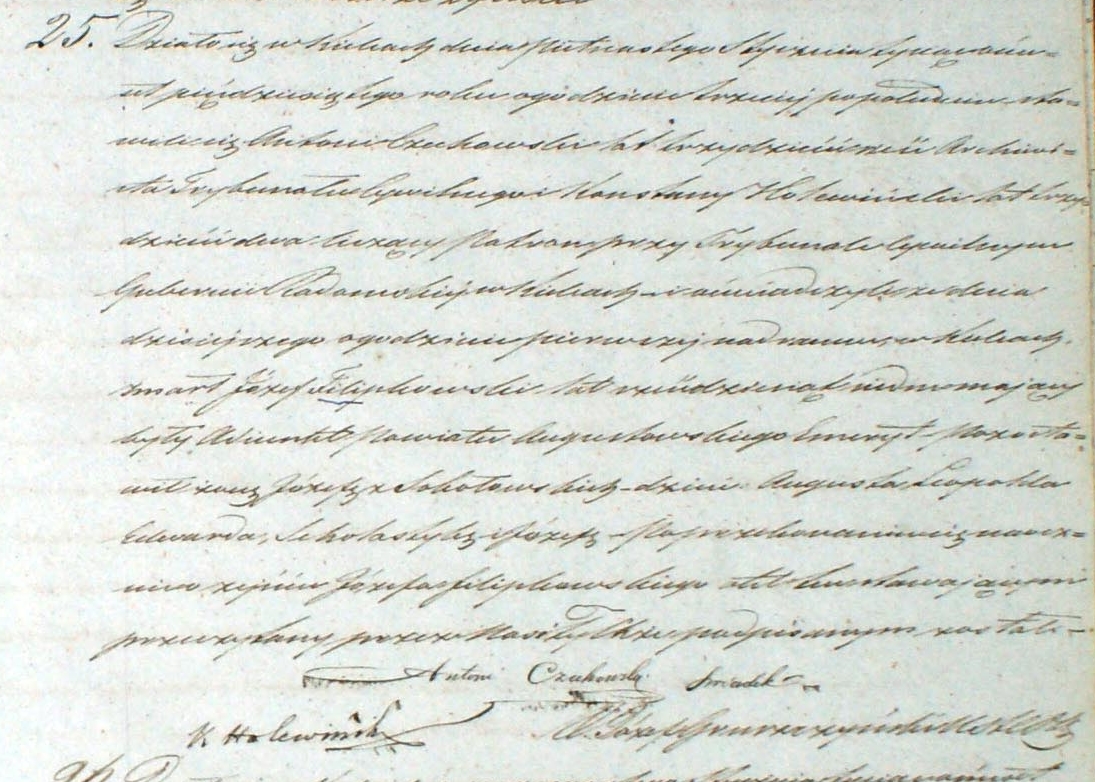 25. Działo się w Kielcach dnia piętnastego Stycznia tysiąc ośm=
set pięćdziesiątego roku o godzinie trzeciej popołudniu, sta=
wili się Antoni Czuchowski lat trzydzieści Archiwi=
sta Trybunału Cywilnego i Konstanty Holewiński lat trzy
dzieści dwa liczący Patron przy Trybunale Cywilnym
Gubernii Radomskiej w Kielcach i oświadczyli że dnia
dzisiejszego o godzinie pierwszej nad ranem, w Kielcach,
zmarł Józef Filipkowski lat sześćdziesiąt mający
były Adjunkt Powiatu Augustowskiego Emeryt – Pozosta=
wił żonę Józefę z Sobotowskich – dzieci Augusta, Leopolda
Edwarda, Scholastykę i Józefę – Po przekonaniu się naocz=
nie o zejściu Józefa Filipkowskiego akt ten stawającymi
przeczytany przez Nas i Tychże podpisanym został –
Antoni Czuchowski Świadek
K Holewiński
X. Józef
26.